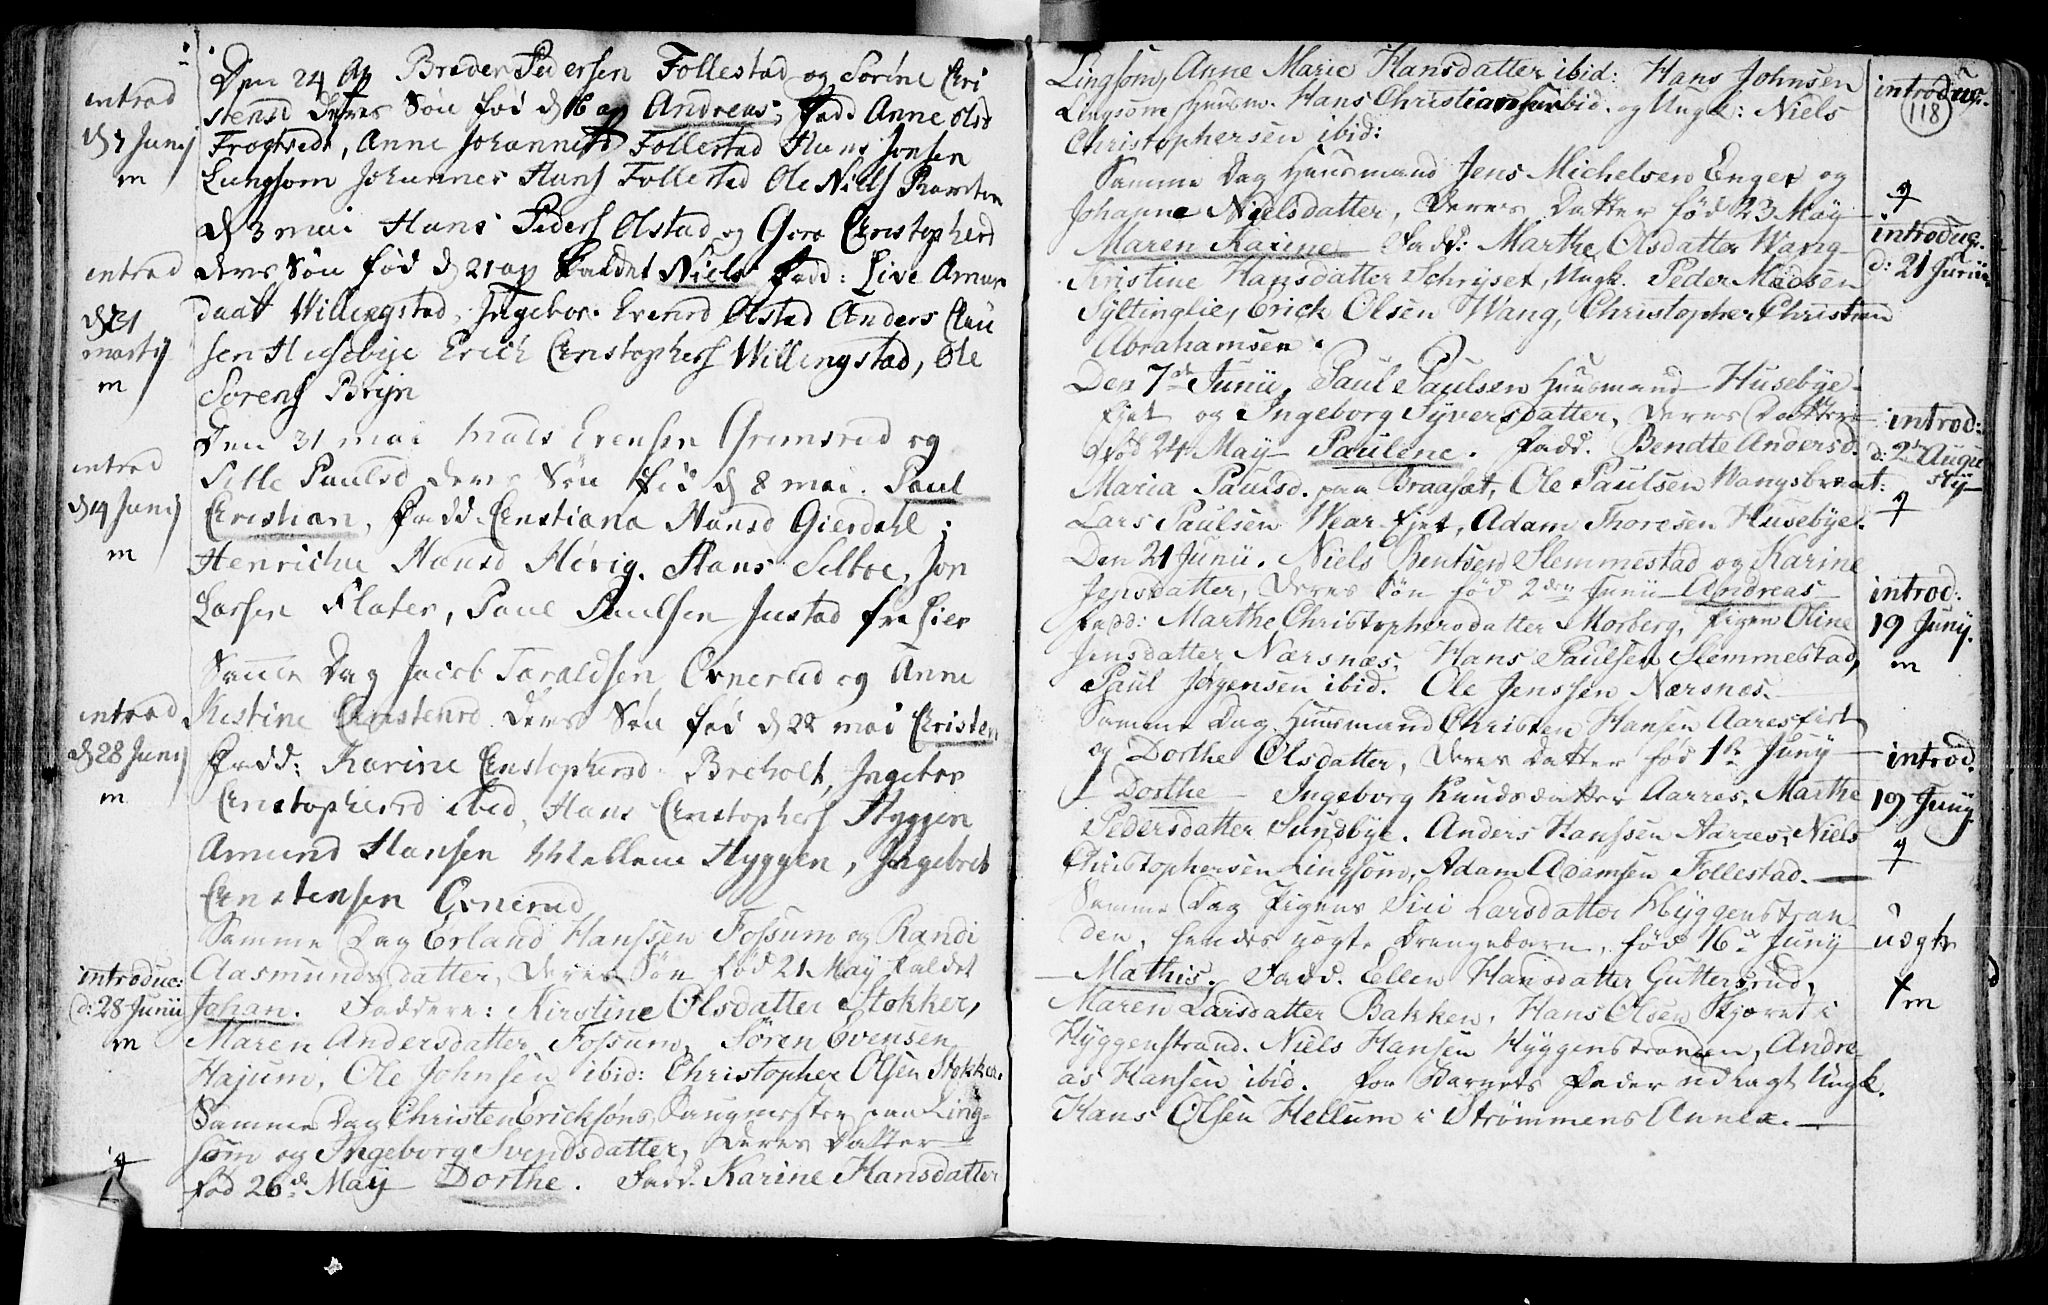 introd
d 7 Junij
m
Den 24 Ap Breder Pedersen Follestad og Sorine Cri
stensd deres Sön föd d 16 ap Andreas; Fadd Anne Olsd
Anne Johannesd Follestad Hans Jonsen
Lingsom Johannes Hans Follestad Ole Niels
d 3 mai Hans Peders Ølstad og Christophersd
introd
deres Sön föd d 21 ap kaldet Niels Fadd: Live Amun
d 21
daatt Willingstad, Ingebor Evensd Ølstad Anders Clau
martij
m
sen Husebye Erich Christophers Willingstad, Ole
Sörens Brÿn
Den 31 mai Mads Evensen Grimsrud og
introd
d 14 Junij
m
Sille Paulsd deres Sön föd d 8 mai. Paul
Christian, Fadd. Christiana Hansd Gierdahl;
Henriche Hansd Hörig. Hans Seltoe, Jon
Larsen Flaten, Paul Paulsen Justad fra Lier
Samme Dag Jacob Taraldsen Ovnerud og Anne
introd
d 28 Junij
m
Kistine Christensd deres Sön föd d 22 mai Cristen
Fadd: Karine Christophersd Breholt, Ingebor
Christophersd ibid, Hans Christophers Hyggen
Amund Hansen Mellem Hyggen, Ingebret
Christensen Ovnerud
Samme Dag Erland Hanssen Fossum og Randi
introduc:
d: 28 Junii
m
Aasmundsdatter, deres Sön föd 21 May kaldet
Johan. Faddere: Kirstine Olsdatter Stokker,
Maren Andersdatter Fossum, Sören Evensen
Hajum, Ole Johnsen ibid: Christopher Olsen Stokker.
Samme Dag Christen Ericksöns Saugmester paa Ling-
som og Ingeborg Svendsdatter, deres Datter
föd 26de May Dorthe. Fadd. Karine Hansdatter
118
Lingsom, Anne Marie Hansdatter ibid: Hans Johnsen
introduc.
Lingsom, Huusm. Hans Christiansen ibid. og Ungk: Niels
Christophersen ibid:
Samme Dag Huusmand Jens Michelsen Enger og
Johanne Nielsdatter, deres Datter föd 23 May
Maren Karine Fadd: Marthe Olsdatter Wang
introduc.
d: 21 Junii
Kristine Hansdatter Schryset, Ungk. Peder Madsen
Syltinglie, Erick Olsen Wang, Christopher Christian
Abrahamsen.
Den 7de Junii, Paul Paulsen Huusmand Husebye-
Ejet og Ingeborg Syversdatter, deres Datter
introd:
föd 24 May Pauline. Fadd. Bendte Andersd.
d: 2de Augu
stij
Maria Paulsd. paa Braaset, Ole Paulsen Wangsbraat:
Lars Paulsen Wear-Ejet, Adam Thoresen Husebye.
Den 21 Junii. Niels Bentsen Slemmestad og Karine
Jensdatter, deres Sön föd 2den Junii Andreas
introd:
19 Junij.
m
Fadd: Marthe Christophersdatter Morberg, Pigen Oline
Jensdatter Nærsnæs, Hans Paulsen Slemmestad,
Paul Jörgensen ibid. Ole Jenssen Nærsnes.
Samme Dag Huusmand Christen Hansen Aareseiet
og Dorthe Olsdatter, deres Datter föd 1ste Juny
introd.
19 Junij
Dorthe Ingeborg Knudsdatter Aarres, Marthe
Pedersdatter Sundbye. Anders Hanssen Aarræs, Niels
Christophersen Lingsom, Adam Adamsen Follestad.
Samme Dag Pigens Siri Larsdatter Hÿggenstran
den, hendes uægte Drengebarn, föd 16de Juny
uægte
m
Mathis. Fadd. Ellen Hansdatter Guttersrud,
Maren Larsdatter Bakken, Hans Olsen Kjæret i
Hÿggenstrand. Niels Hansen Hÿggenstranden, Andre-
as Hansen ibid. for Barnets Fader udlagt Ungk.
Hans Olsen Hellum i Strömmens Annex.